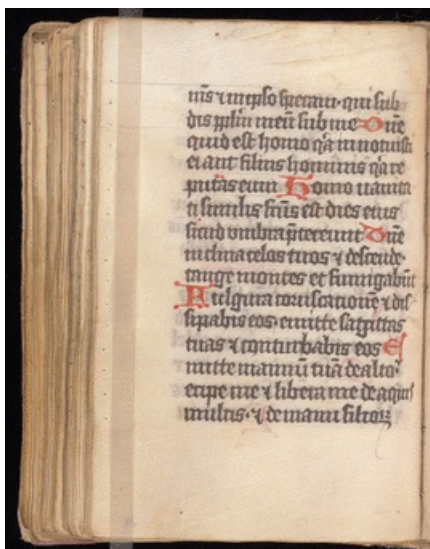 m̄s ⁊ in ipso speraui · qui sub
dis pplm̄ meū sub me Dn̄e
quid est homo qͥa innotuisti
ei aut filius hominis qͥa re
putas eum Homo uanita
ti similis fc̄us est dies eius
sicud vmbra p̄tereunt Dn̄e
inclina celos tuos ⁊ descende ·
tange montes et fumigabūt
Fulgura coruscationē ⁊ dis
sipabis eos · emitte sagittas
tuas ⁊ conturbabis eos E
mitte manū tuā de alto ·
eripe me ⁊ libera me de aquis
multis · ⁊ de manu filioꝝ